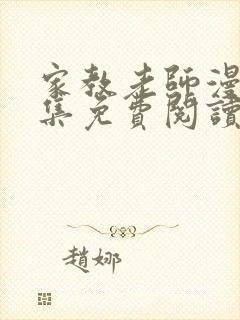 家教老師漫
集免費閱讀
趙娜